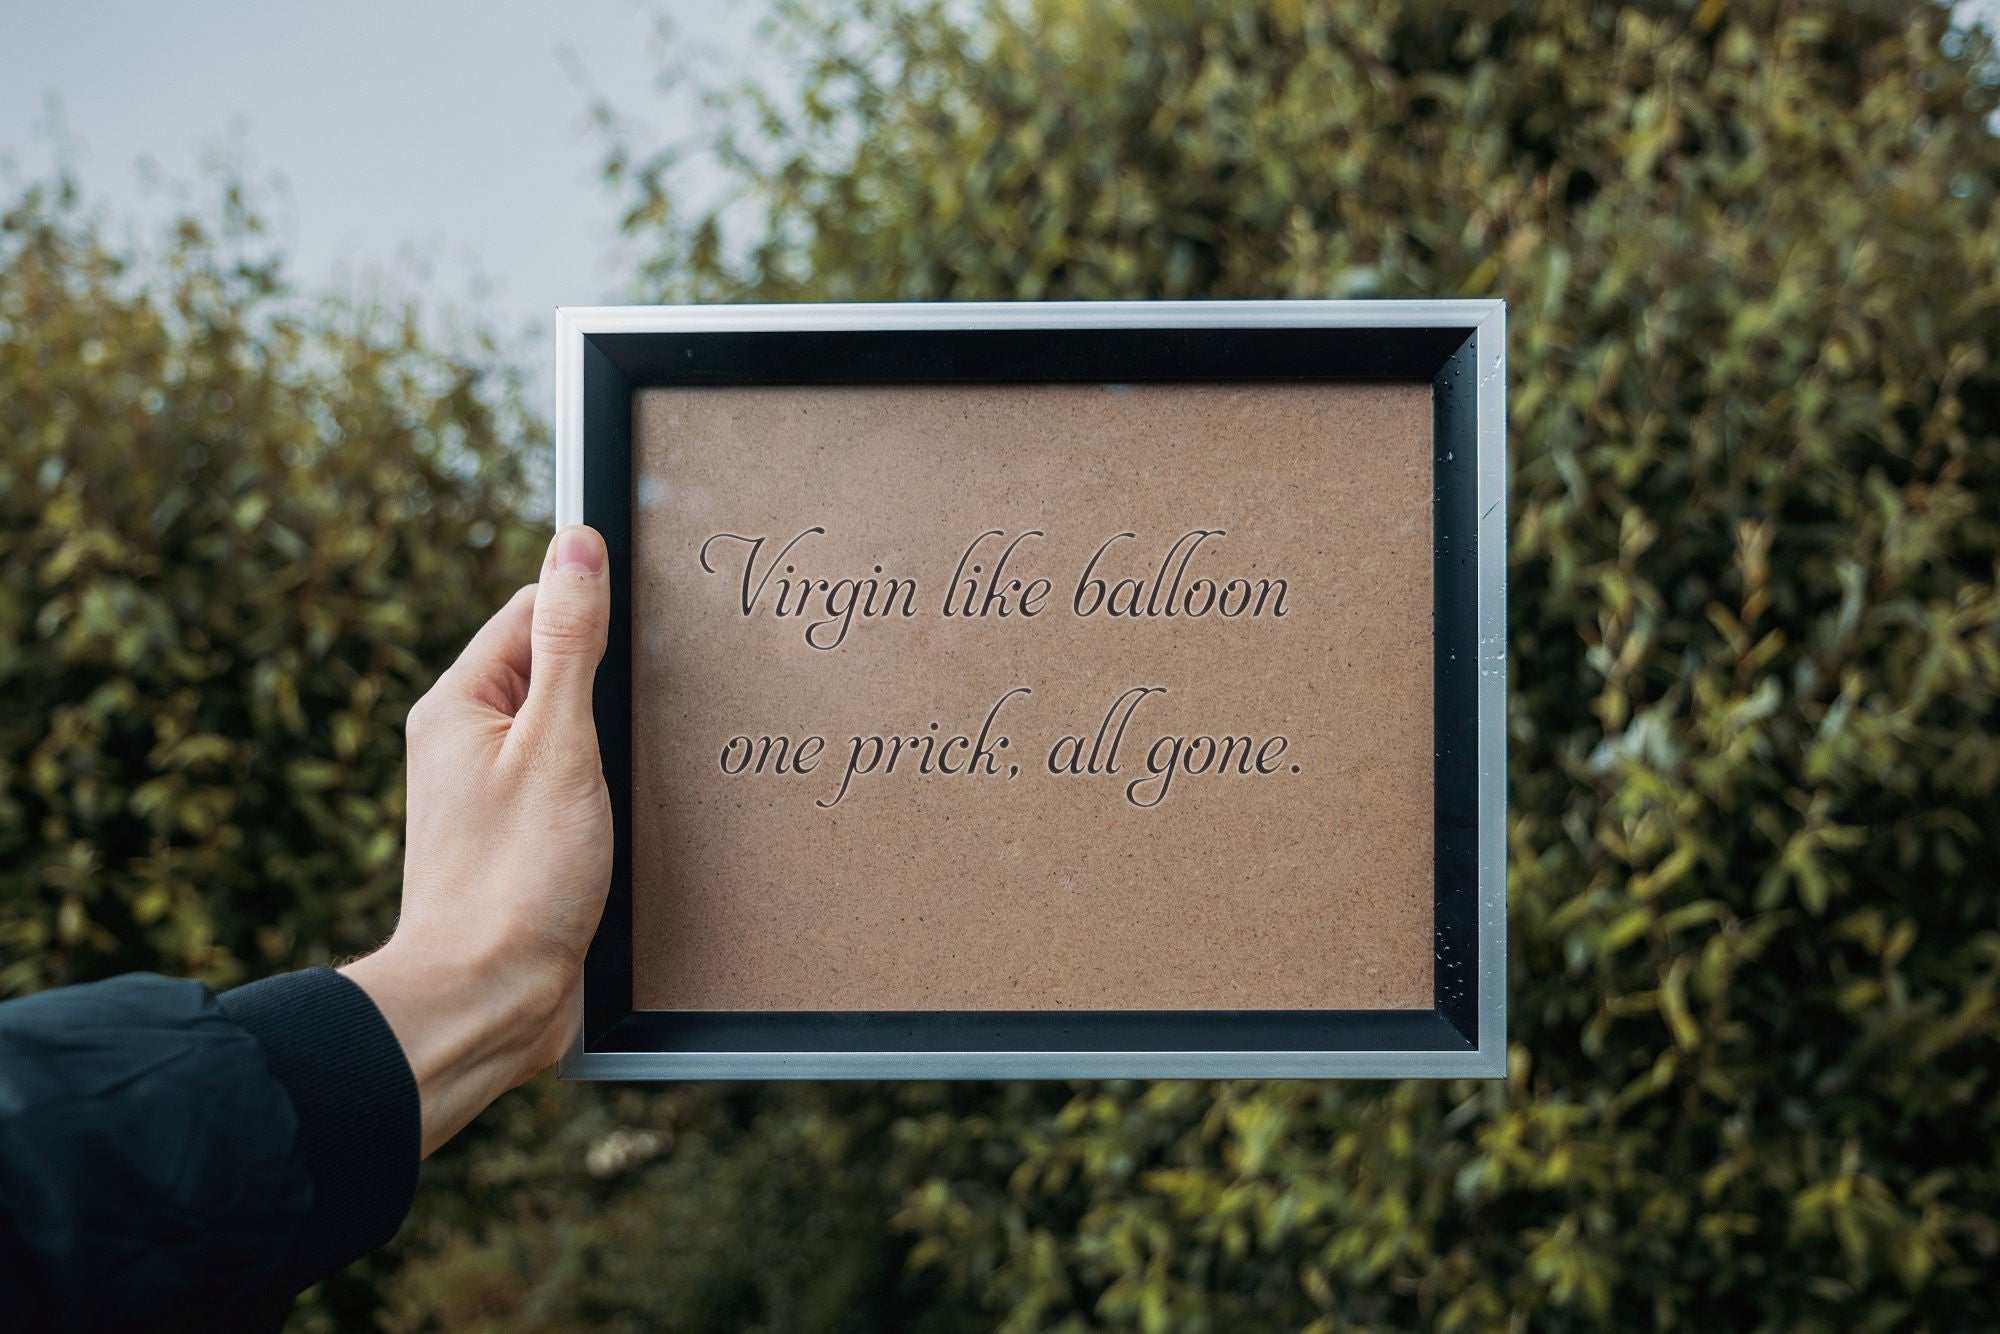 Virgin like balloon
one prick, all gone.